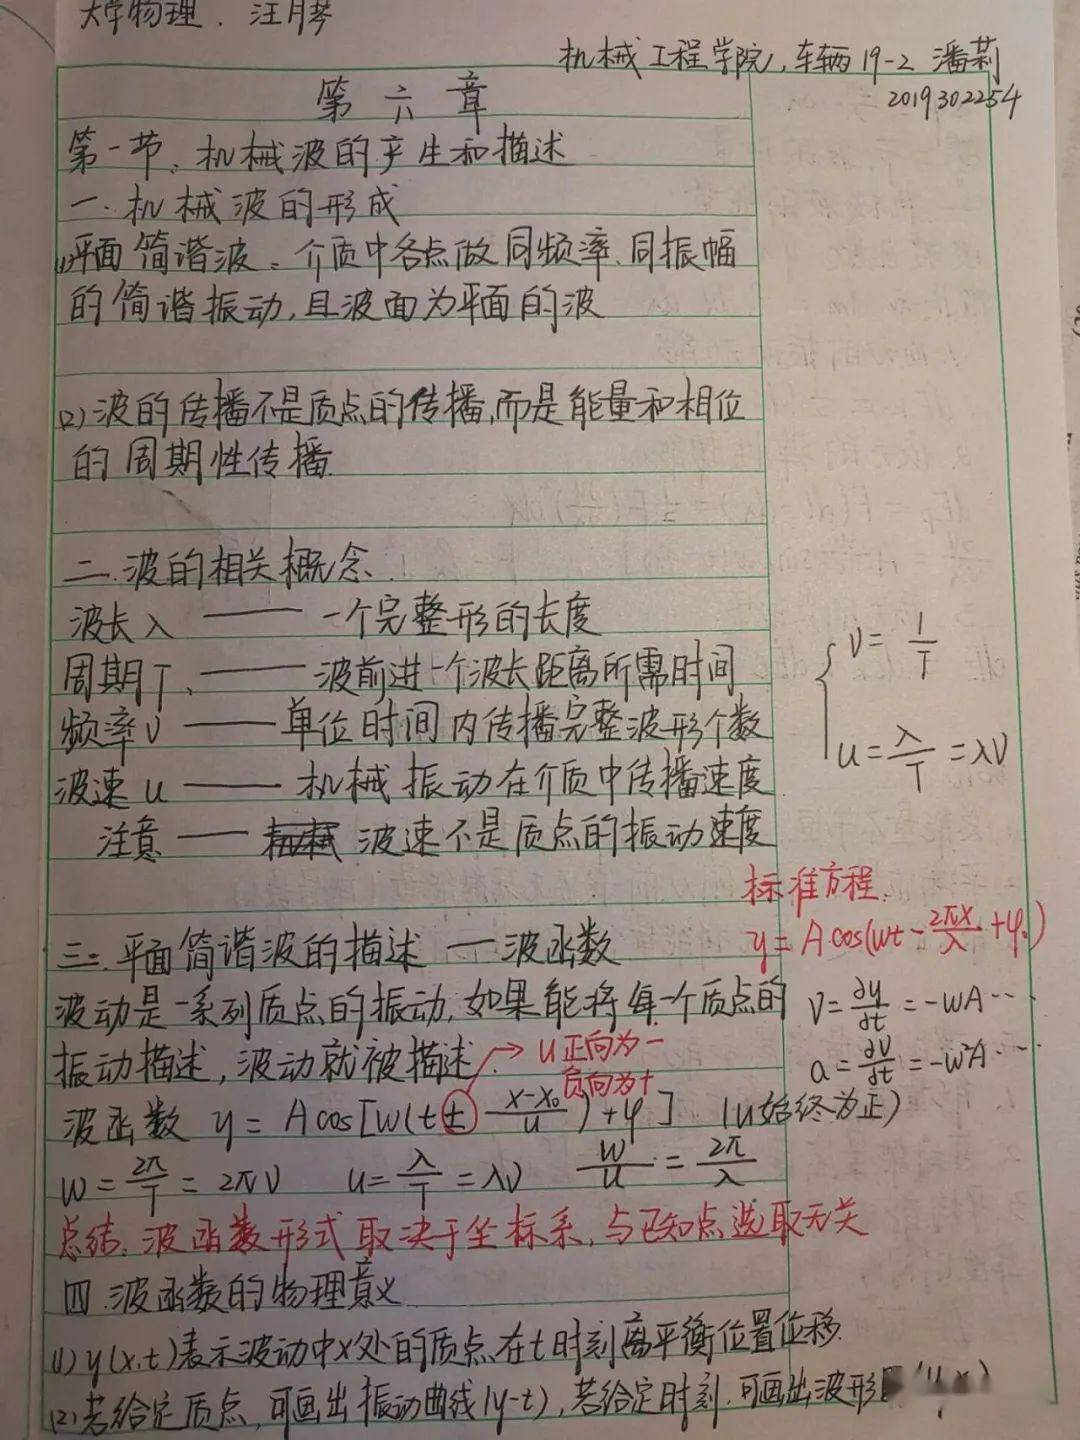 大学物理. 汪月琴
机械工程学院, 车辆19-2 潘莉
2019302254
第六章
第一节、机械波的产生和描述
一.机械波的形成
(1)平面简谐波:介质中各点做同频率、同振幅
的简谐振动,且波面为平面的波
(2)波的传播不是质点的传播,而是能量和相位
的周期性传播
二.波的相关概念
波长λ —— 一个完整形的长度
周期T、—— 波前进一个波长距离所需时间
频率ν —— 单位时间内传播完整波形个数
波速u —— 机械振动在介质中传播速度
注意 —— 波速不是质点的振动速度
ν = 1/T
u = λ/T = λν
标准方程.
y = A cos(wt - 2πx/λ + φ₀)
三.平面简谐波的描述 — 波函数
波动是一系列质点的振动,如果能将每个质点的
振动描述,波动就被描述.
u正向为-
负向为+
V = ∂y/∂t = -wA…
a = ∂V/∂t = -w²A…
波函数 y = A cos[w(t ± (x-x₀)/u) + φ] (u始终为正)
w = 2π/T = 2πν u = λ/T = λν w/u = 2π/λ
总结:波函数形式取决于坐标系,与已知点选取无关
四.波函数的物理意义
(1)y(x,t)表示波动中x处的质点在t时刻离平衡位置位移.
(2)若给定质点,可画出振动曲线(y-t),若给定时刻,可画出波形